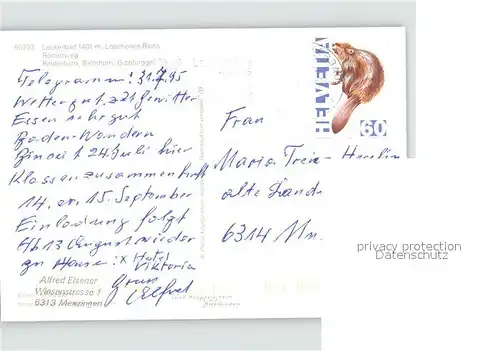 60303 Leukerbad 1401 m, Loèche-les-Bains
Römerweg
Rinderhorn, Balmhorn, Gitzifurgge
Telegramm! 31.7.95
Wetter gut, z Zt Gewitter
Essen sehr gut
Baden-Wandern
Bin seit 24 Juli hier
Klassenzusammenkunft
14. 15. September
Einladung folgt
Ab 13 August wieder
zu Hause: x Hotel
Viktoria
Gruss
Alfred
Alfred Elsener
Winzenstrasse 1
6313 Menzingen
HELVETIA
60
Frau
Maria
alte Land
6314
privacy protection
Datenschutz